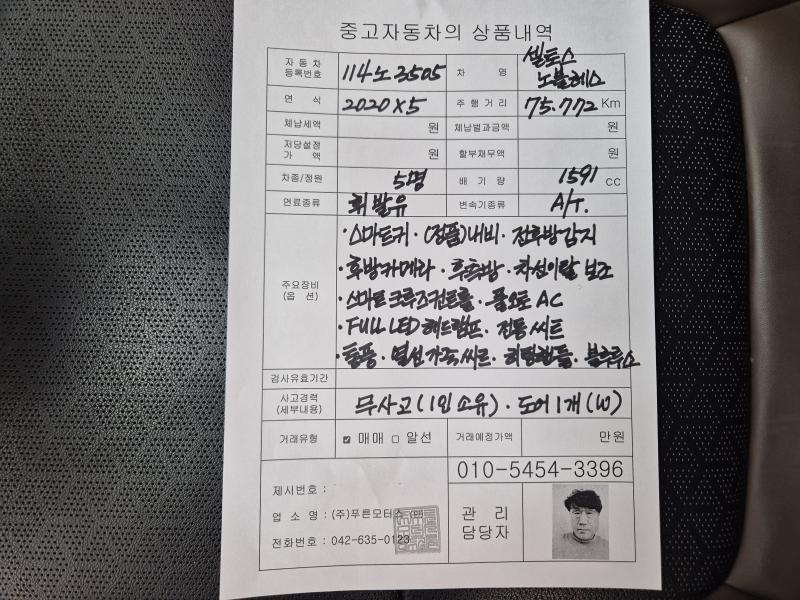 중고자동차의 상품내역
자동차 등록번호 114노3505 차 명 셀토스 노블레스
연 식 2020X5 주행거리 75.772 Km
체납세액 원 체납벌과금액 원
저당설정 가 액 원 할부채무액 원
차종/정원 5명 배 기 량 1591 cc
연료종류 휘발유 변속기종류 A/T.
주요장비 (옵 션)
·스마트키·(정품)내비·전후방감지
·후방카메라·후측방·차선이탈 보조
·스마트크루즈컨트롤·풀오토 AC
·FULL LED 헤드램프·전동씨트
·통풍·열선가죽씨트·히팅핸들·블루투스
검사유효기간
사고경력 (세부내용) 무사고(1인소유)·도어1개(W)
거래유형 ☑ 매매 □ 알선 거래예정가액 만원
010-5454-3396
제시번호 :
업 소 명 : (주)푸른모터스
전화번호 : 042-635-0123
관 리
담당자